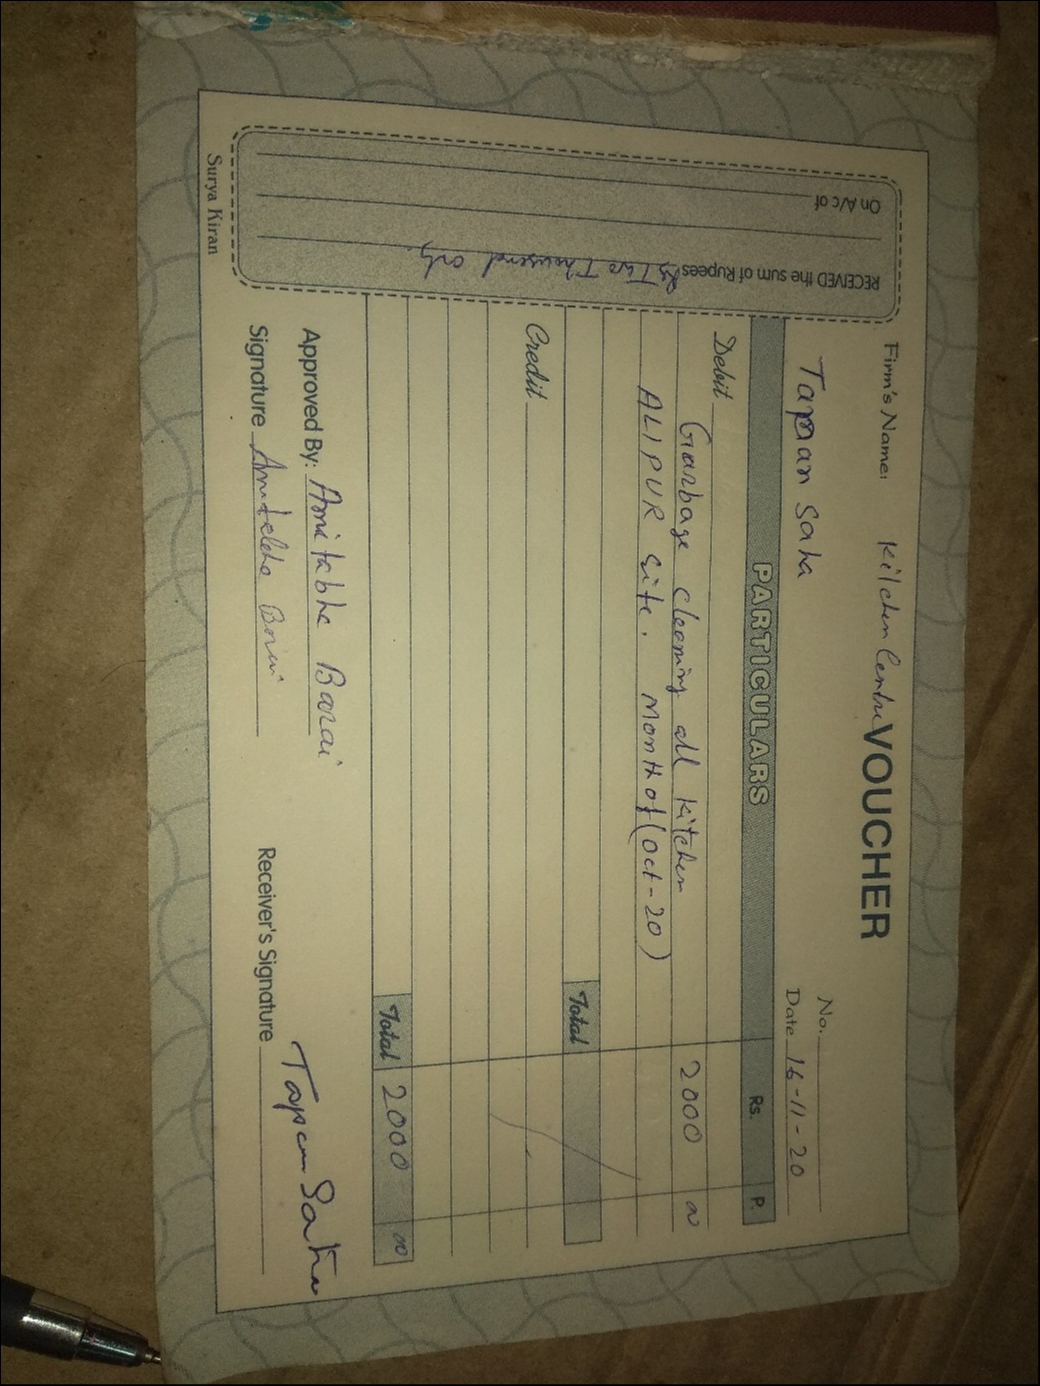 Firm's Name: Kitchen Centre VOUCHER
No.
Tapan Saha
Date 16-11-20
PARTICULARS Rs. P.
Debit
Garbage cleaning all kitchen 2000 00
ALIPUR site. Month of (Oct-20)
Total
Credit
Total 2000 00
Approved By: Amitabha Barai
Signature Amitabha Barai
Receiver's Signature Tapan Saha
On A/c of
RECEIVED the sum of Rupees Rs Two Thousand only
Surya Kiran